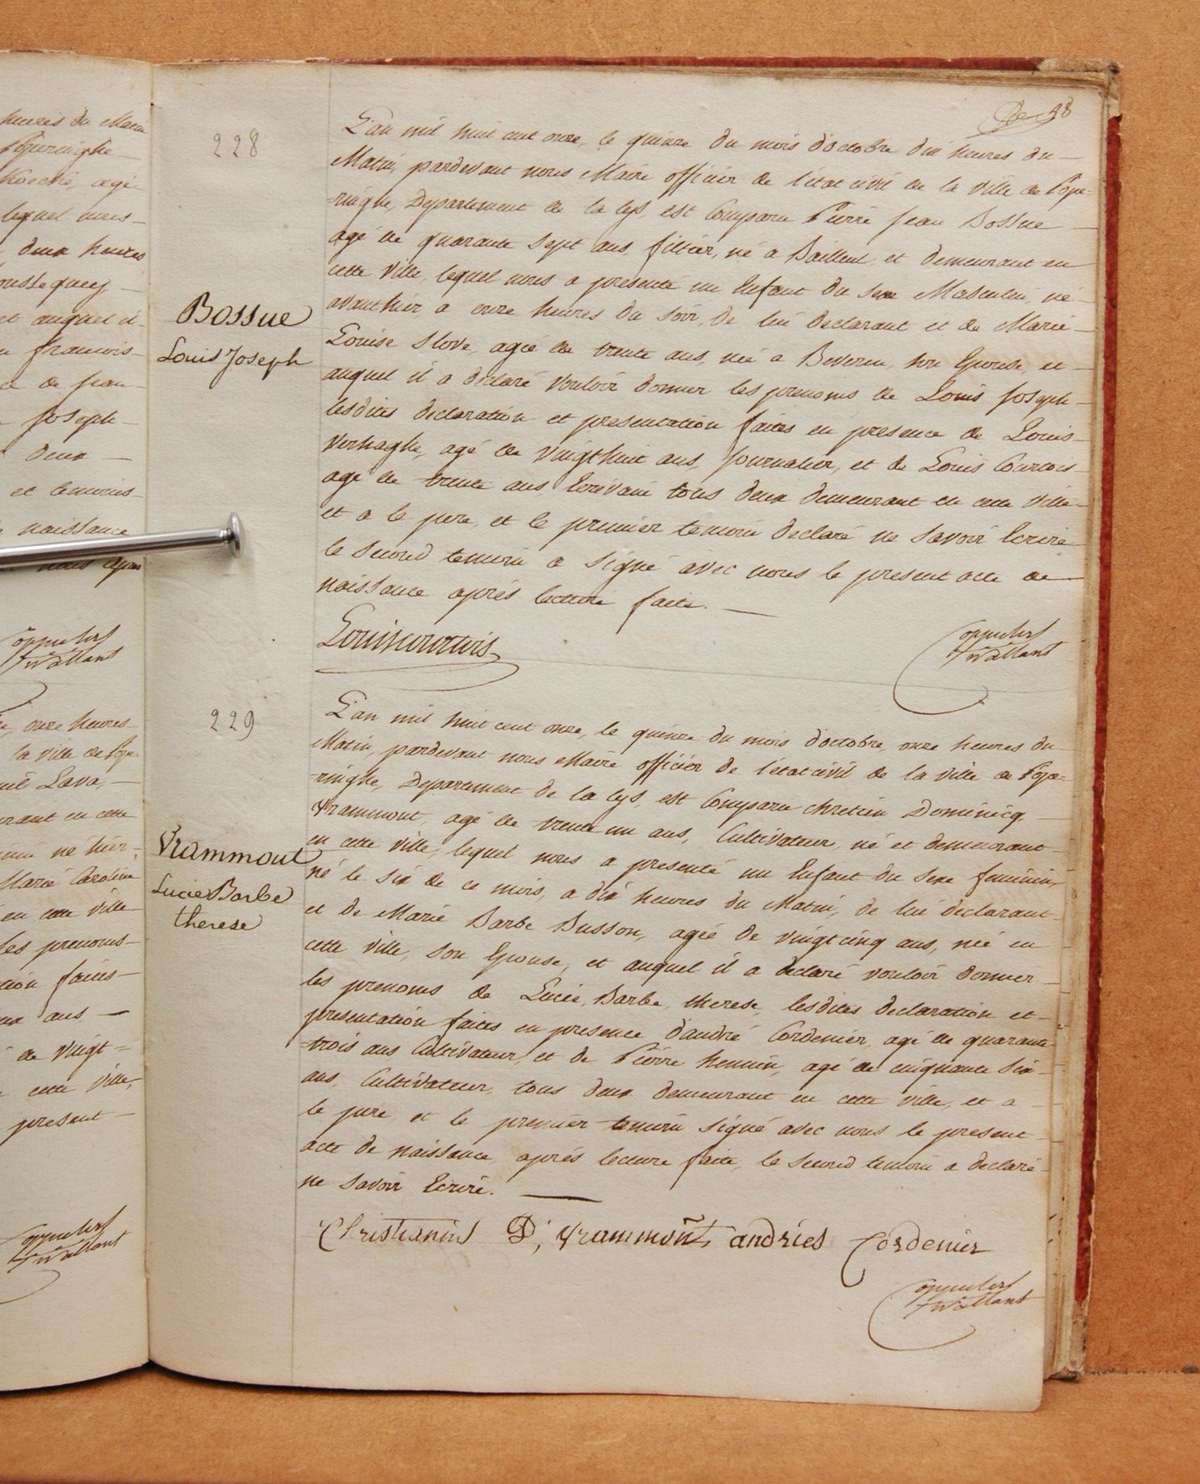 heures du Matin
Poperinghe
agé
lequel nous
deux heures
et auquel il
francois
de jean
joseph
deux
et temoins
naissance
nous apres
onze heures
la ville de Pope
Lava,
en cette
né hier,
Marie Caroline
en cette ville
les prenoms
faites
ans
de vingt
cette ville,
present
98
228
Bossue
Louis Joseph
L'an mil huit cent onze, le quinze du mois d'octobre dix heures du
Matin, pardevant nous Maire officier de l'etat civil de la ville de Pope
ringhe, Departement de la Lys, est Comparu Pierre Jean Bossue
agé de quarante sept ans, filtier, né à Bailleul, et demeurant en
cette ville, lequel nous a presenté un Enfant du sexe Masculin, né
avanthier à onze heures du soir, de lui declarant et de Marie
Louise Slove, agée de trente ans, née a Beveren, son Epouse, et
auquel il a declaré vouloir donner les prenoms de Louis Joseph
lesdites declaration et presentation faites en presence de Louis
Verhaghe, agé de vingthuit ans, journalier, et de Louis Courtois
agé de trente ans Ecrivain tous deux demeurant en cette ville
et a le pere, et le premier temoin declaré ne savoir Ecrire
le second temoin a signé avec nous le present acte de
naissance après lecture faite.
Louiscourtois
229
Vrammout
Lucie Barbe
therese
L'an mil huit cent onze, le quinze du mois d'octobre, onze heures du
Matin, pardevant nous Maire officier de l'etat civil de la ville de Pope
ringhe, Departement de la Lys, est Comparu chretien Dominicq
Vrammont, agé de trente un ans, Cultivateur, né et demeurant
en cette ville, lequel nous a presenté un Enfant du sexe feminin,
né le six de ce mois, a dix heures du Matin, de lui declarant
et de Marie Barbe Busson, agée de vingtcinq ans, née en
cette ville, son Epouse, et auquel il a declaré vouloir donner
les prenoms de Lucie, Barbe, therese, lesdites declaration et
presentation faites en presence d'andré Cordenier, agé de quarante
trois ans Cultivateur, et de Pierre hennin, agé de cinquante six
ans, Cultivateur, tous deux demeurant en cette ville, et a
le pere et le premier temoin signé avec nous le present
acte de naissance, après lecture faite, le second temoin a declaré
ne savoir Ecrire.
Christianus D, Vrammont, andries Cordenier